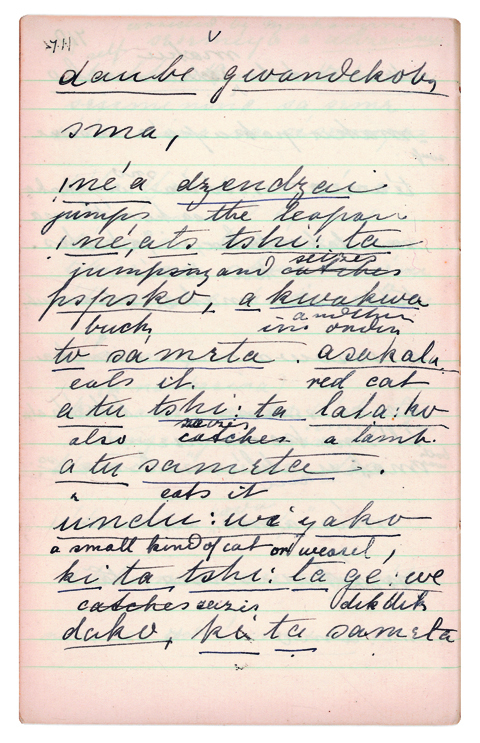 daube gwandekob,
sma,
,né a dzendzai
jumps the leopar
,né, ats tshi: ta
jumpsing and catches seizes
pspsko, a kwakwa
buck, ins andther order
to samɛta. asakala
eats it. red cat
a tu tshi: ta lala:ko
also catches seizes a lamb.
a tu samɛta.
" eats it
undu: wi yako
a small kind of cat or weasel,
ki ta tshi: ta ge: we
catches seizes dikdik
dako, ki ta samɛta